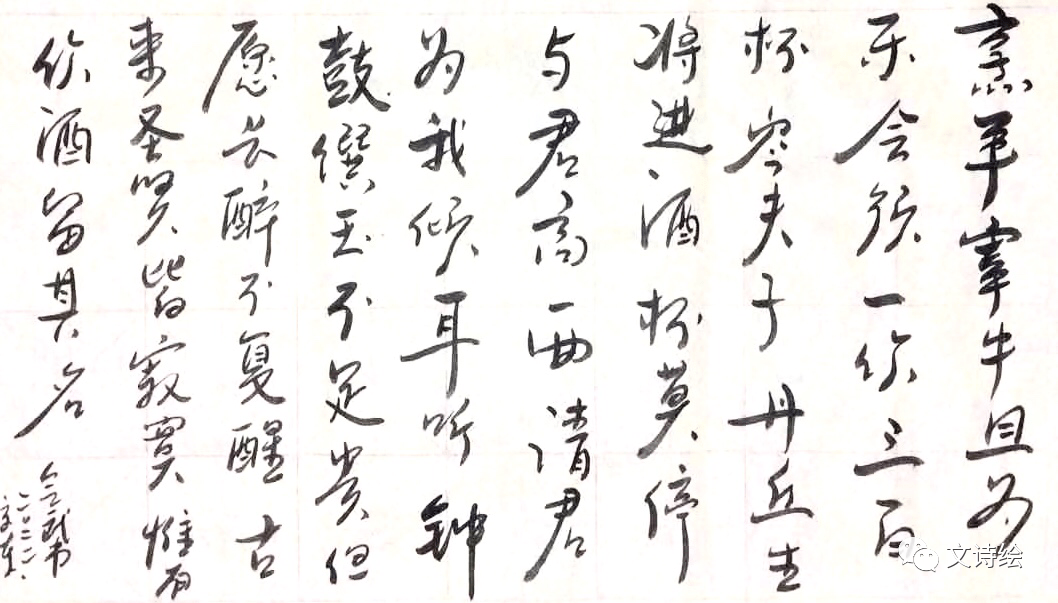 烹羊宰牛且为
乐会须一饮三百
杯岑夫子丹丘生
将进酒杯莫停
与君高一曲请君
为我倾耳听钟
鼓馔玉不足贵但
愿长醉不复醒古
来圣贤皆寂寞惟有
饮酒留其名
文诗绘